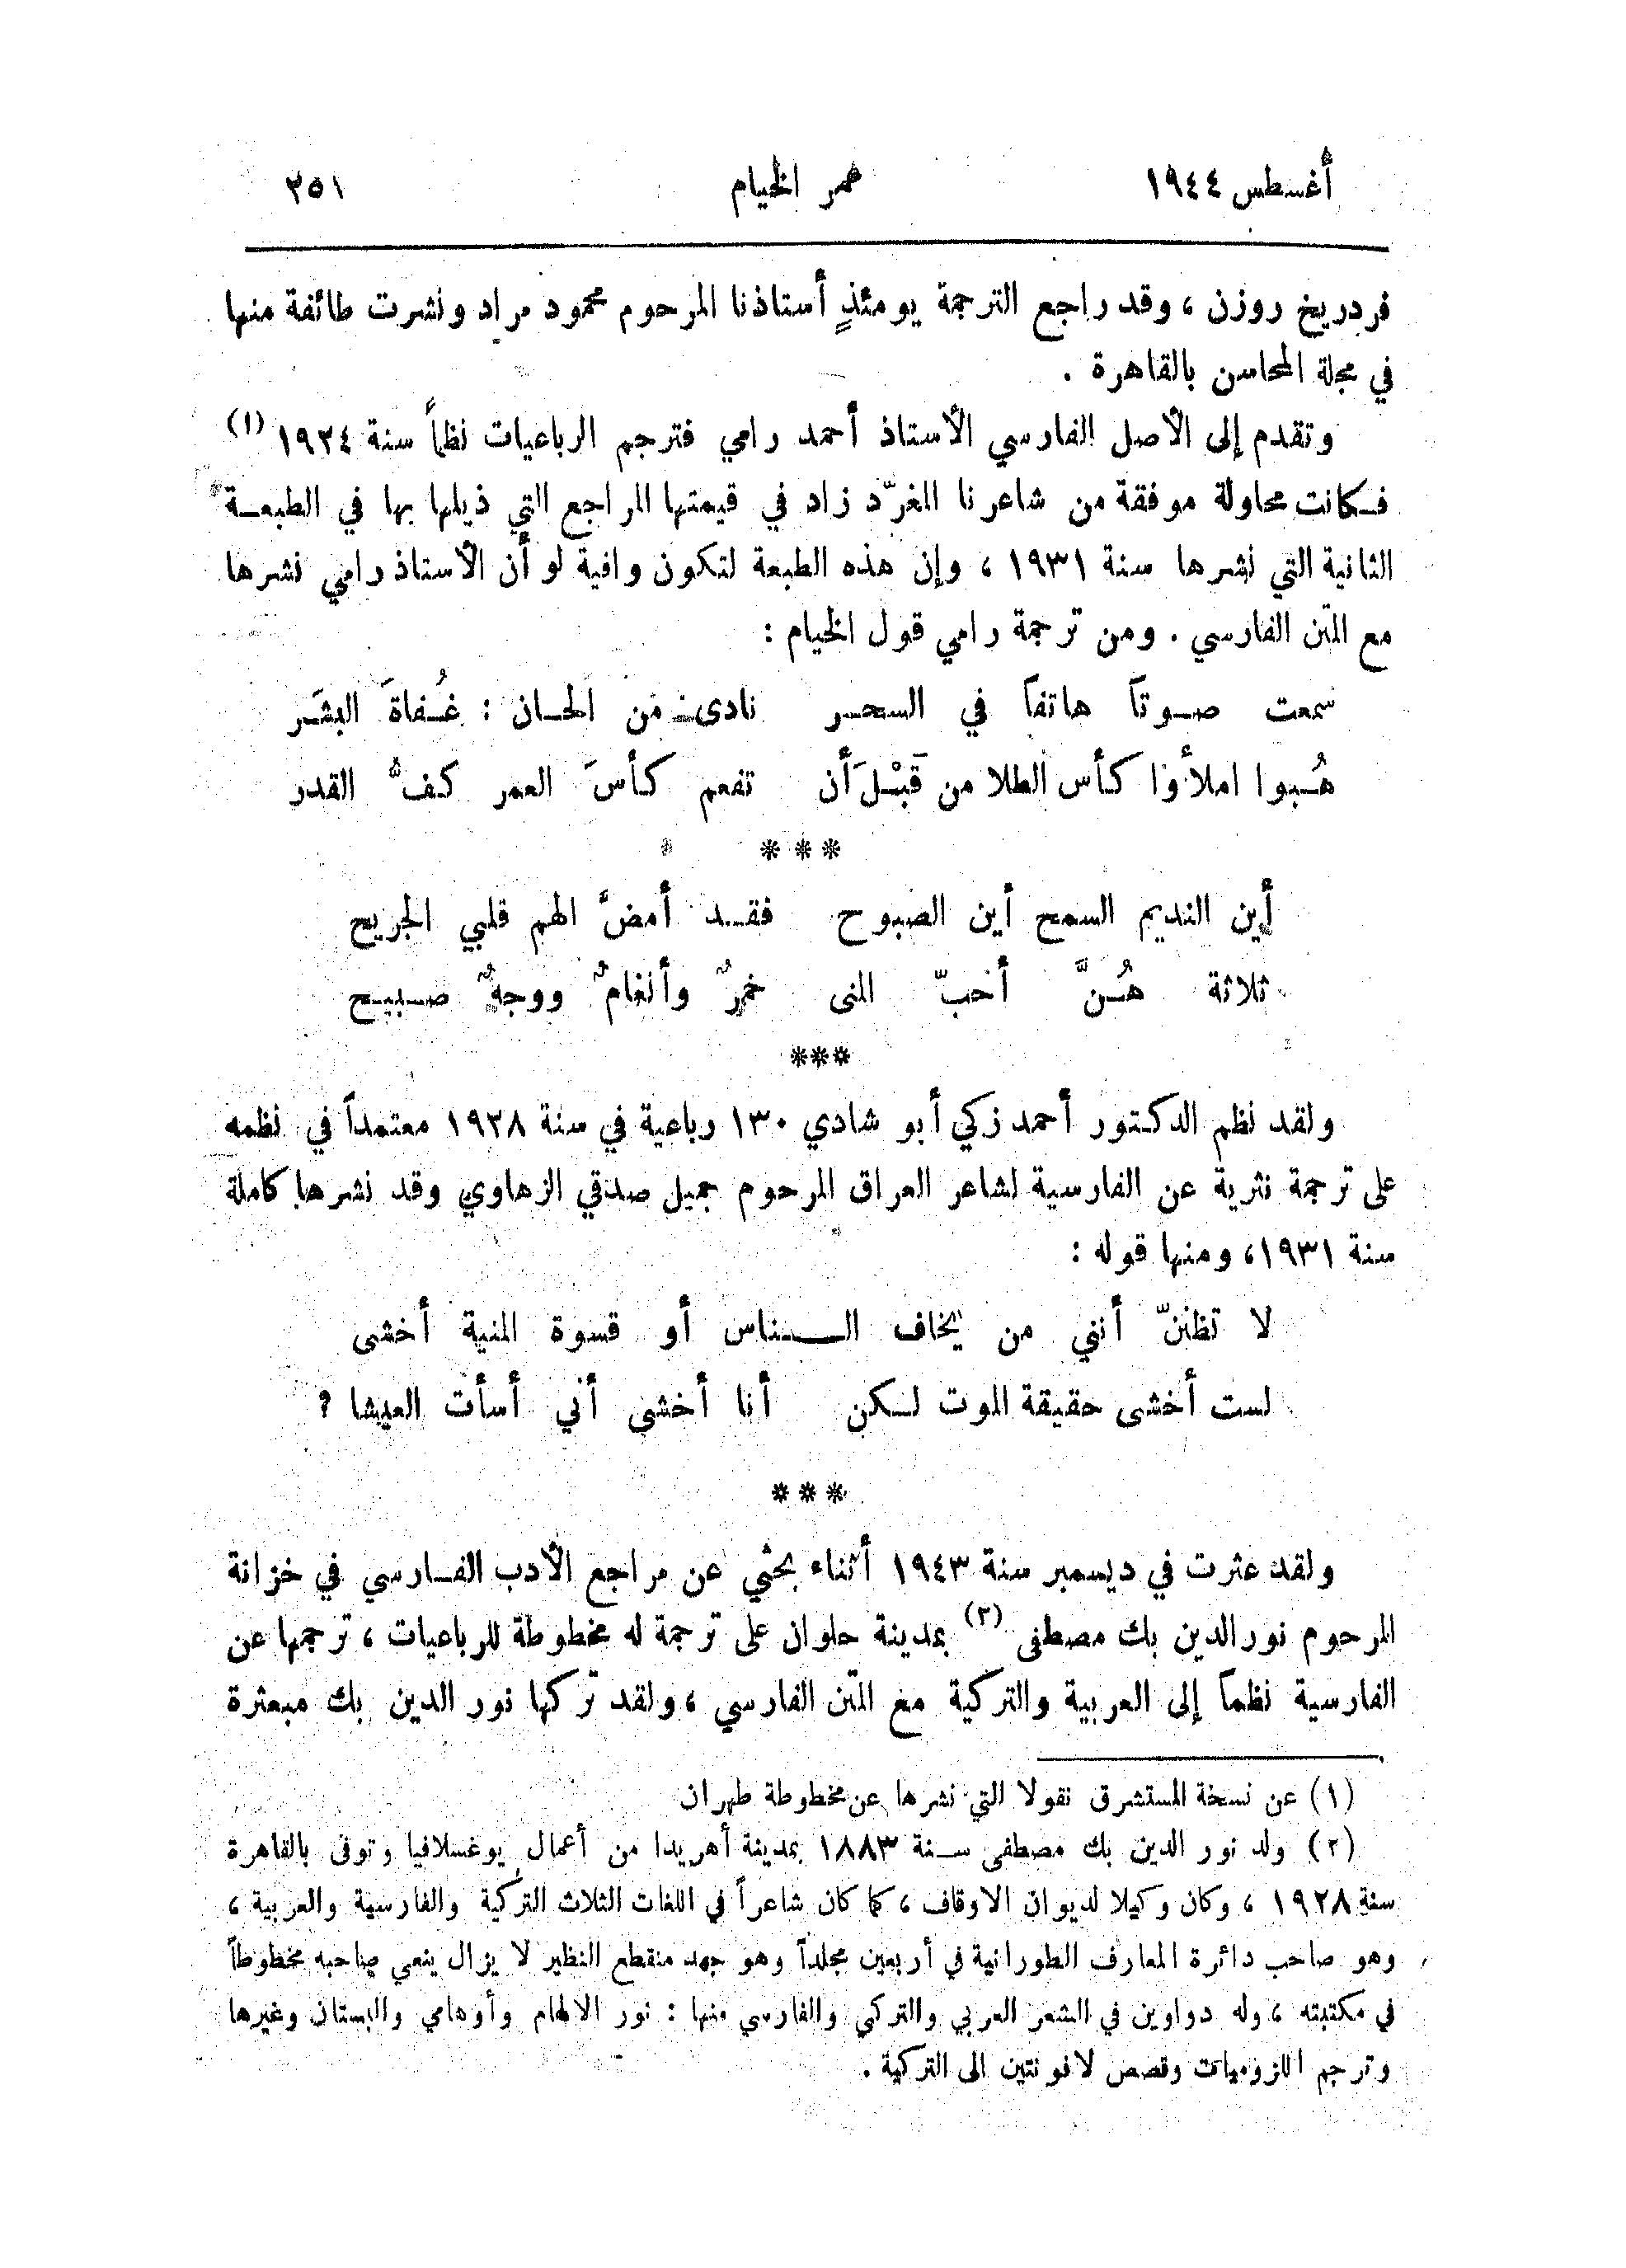 أغسطس ١٩٤٤ عمر الخيام ٢٥١
فردريخ روزن ، وقد راجع الترجمة يومئذٍ أستاذنا المرحوم محمود مراد ونشرت طائفة منها
في مجلة المحاسن بالقاهرة .
وتقدم إلى الأصل الفارسي الأستاذ أحمد رامي فترجم الرباعيات نظماً سنة ١٩٢٤ (١)
فكانت محاولة موفقة من شاعرنا المغرّد زاد في قيمتها المراجع التي ذيلها بها في الطبعة
الثانية التي نشرها سنة ١٩٣١ ، وإن هذه الطبعة لتكون وافية لو أن الأستاذ رامي نشرها
مع المتن الفارسي . ومن ترجمة رامي قول الخيام :
سمعت صوتاً هاتفاً في السحر نادى من الحان : غُفاةَ البشَر
هُبوا املأوا كأس الطلا من قَبْلَ أن تفعم كأسَ العمر كفُّ القدر
***
أين النديم السمح أين الصبوح فقد أمضَّ الهم قلبي الجريح
ثلاثة هُنَّ أحبّ المنى خمرٌ وأنغامٌ ووجهٌ صبيح
***
ولقد نظم الدكتور أحمد زكي أبو شادي ١٣٠ رباعية في سنة ١٩٢٨ معتمداً في نظمه
على ترجمة نثرية عن الفارسية لشاعر العراق المرحوم جميل صدقي الزهاوي وقد نشرها كاملة
سنة ١٩٣١، ومنها قوله :
لا تظننّ أنني من يخاف الناس أو قسوة المنية أخشى
لست أخشى حقيقة الموت لكن أنا أخشى أني أسأت العيشا ?
***
ولقد عثرت في ديسمبر سنة ١٩٤٣ أثناء بحثي عن مراجع الأدب الفارسي في خزانة
المرحوم نور الدين بك مصطفى (٢) بمدينة حلوان على ترجمة له مخطوطة للرباعيات ، ترجمها عن
الفارسية نظماً إلى العربية والتركية مع المتن الفارسي ، ولقد تركها نور الدين بك مبعثرة
(١) عن نسخة المستشرق نقولا التي نشرها عن مخطوطة طهران
(٢) ولد نور الدين بك مصطفى سنة ١٨٨٣ بمدينة أهريدا من أعمال يوغسلافيا وتوفى بالقاهرة
سنة ١٩٢٨ ، وكان وكيلا لديوان الاوقاف ، كما كان شاعراً في اللغات الثلاث التركية والفارسية والعربية ،
وهو صاحب دائرة المعارف الطورانية في أربعين مجلداً وهو جهد منقطع النظير لا يزال ينعي صاحبه مخطوطاً
في مكتبته ، وله دواوين في الشعر العربي والتركي والفارسي منها : نور الالهام وأوهامي والبستان وغيرها
وترجم اللزوميات وقصص لافونتين الى التركية .